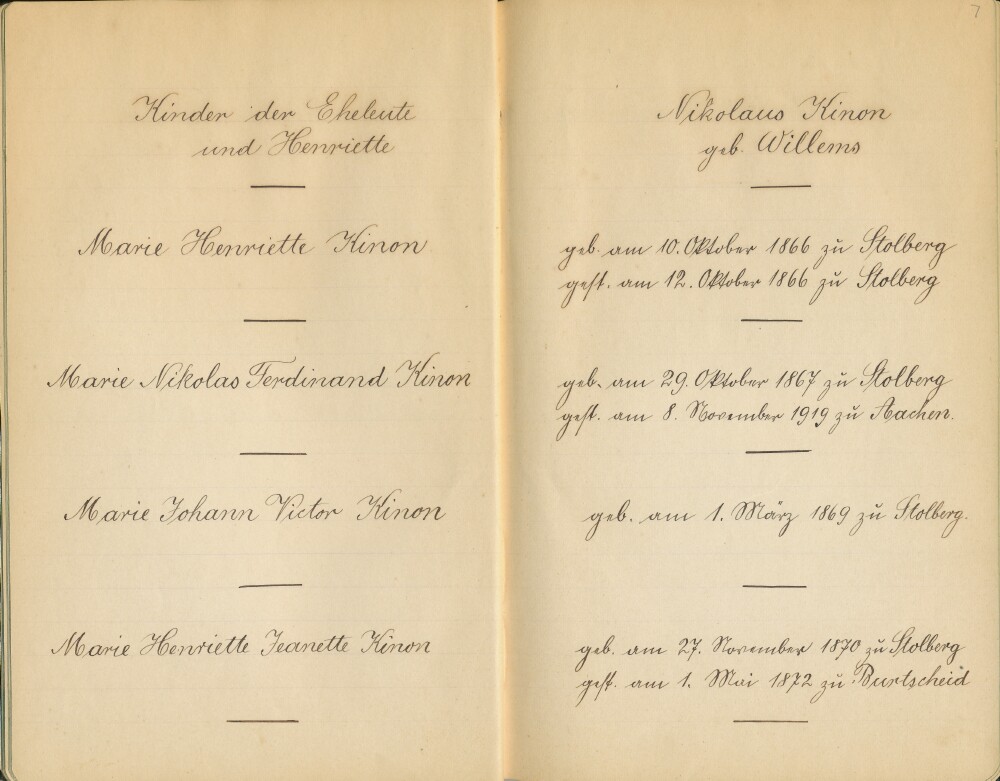 7
Kinder der Eheleute
und Henriette
Nikolaus Kinon
geb. Willems
Marie Henriette Kinon
geb. am 10. Oktober 1866 zu Stolberg
gest. am 12. Oktober 1866 zu Stolberg
Marie Nikolas Ferdinand Kinon
geb. am 29. Oktober 1867 zu Stolberg
gest. am 8. November 1919 zu Aachen.
Marie Johann Victor Kinon
geb. am 1. März 1869 zu Stolberg.
Marie Henriette Jeanette Kinon
geb. am 27. November 1870 zu Stolberg
gest. am 1. Mai 1872 zu Burtscheid